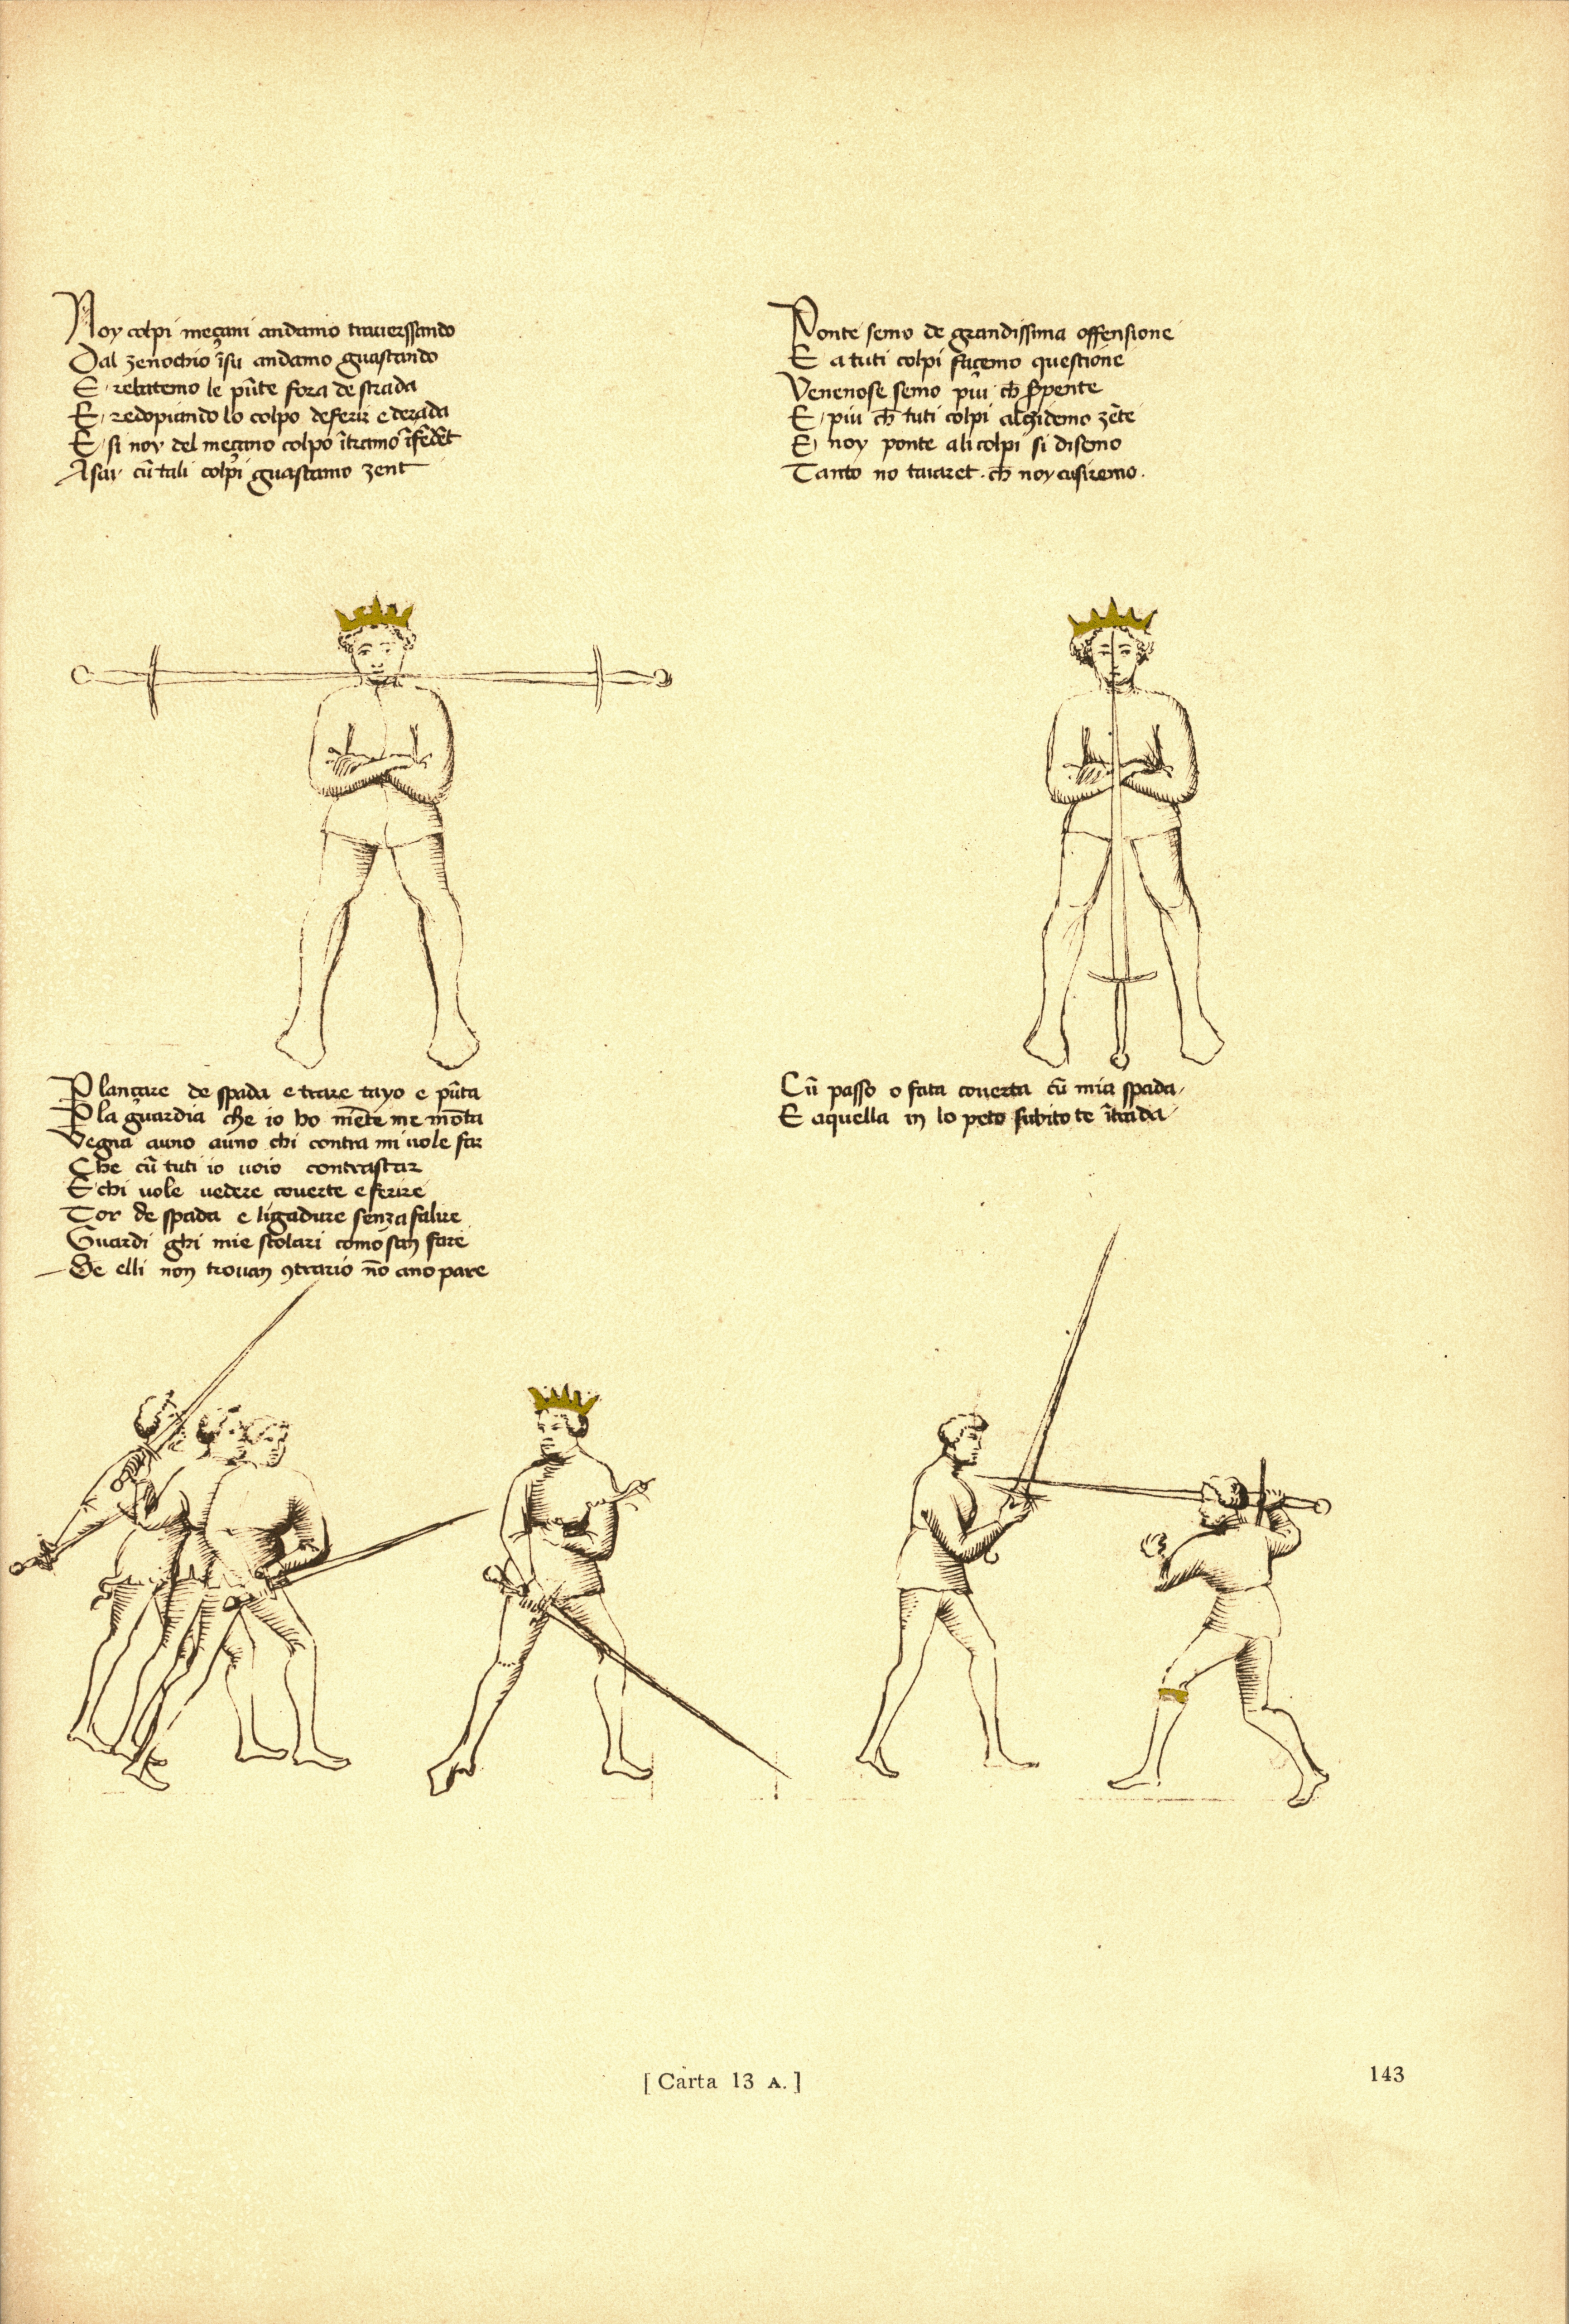 Noy colpi meçani andamo trauerssando
Dal zenochio ĩsu andamo guastando
E rebatemo le pũte fora de strada
E redopiando lo colpo de ferir e derada
E si noy del meçano colpo ĩtramo ĩ fẽdẽt
Asai cũ tali colpi guastamo zent
Ponte semo de grandissima offensione
E a tuti colpi façemo questione
Venenose semo piu ch̃ s̃pente
E piu ch̃ tuti colpi alçidemo zẽte
E noy ponte ali colpi si disemo
Tanto no taiaret ch̃ noy cusiremo.
P lançare de spada e trare tayo e pũta
P la guardia che io ho niẽte me mõta
Vegna auno auno chi contra mi uole far
Che cũ tuti io uoio contrastar
E chi uole uedere couerte e ferire
Tor de spada e ligadure senza falire
Guardi ghi mie scolari como san fare
Se elli non trouan ꝯtrario nõ ano pare
Cũ passo o fata couerta cũ mia spada
E aquella in lo peto subito te ĩtrada
[ Carta 13 A. ]
143